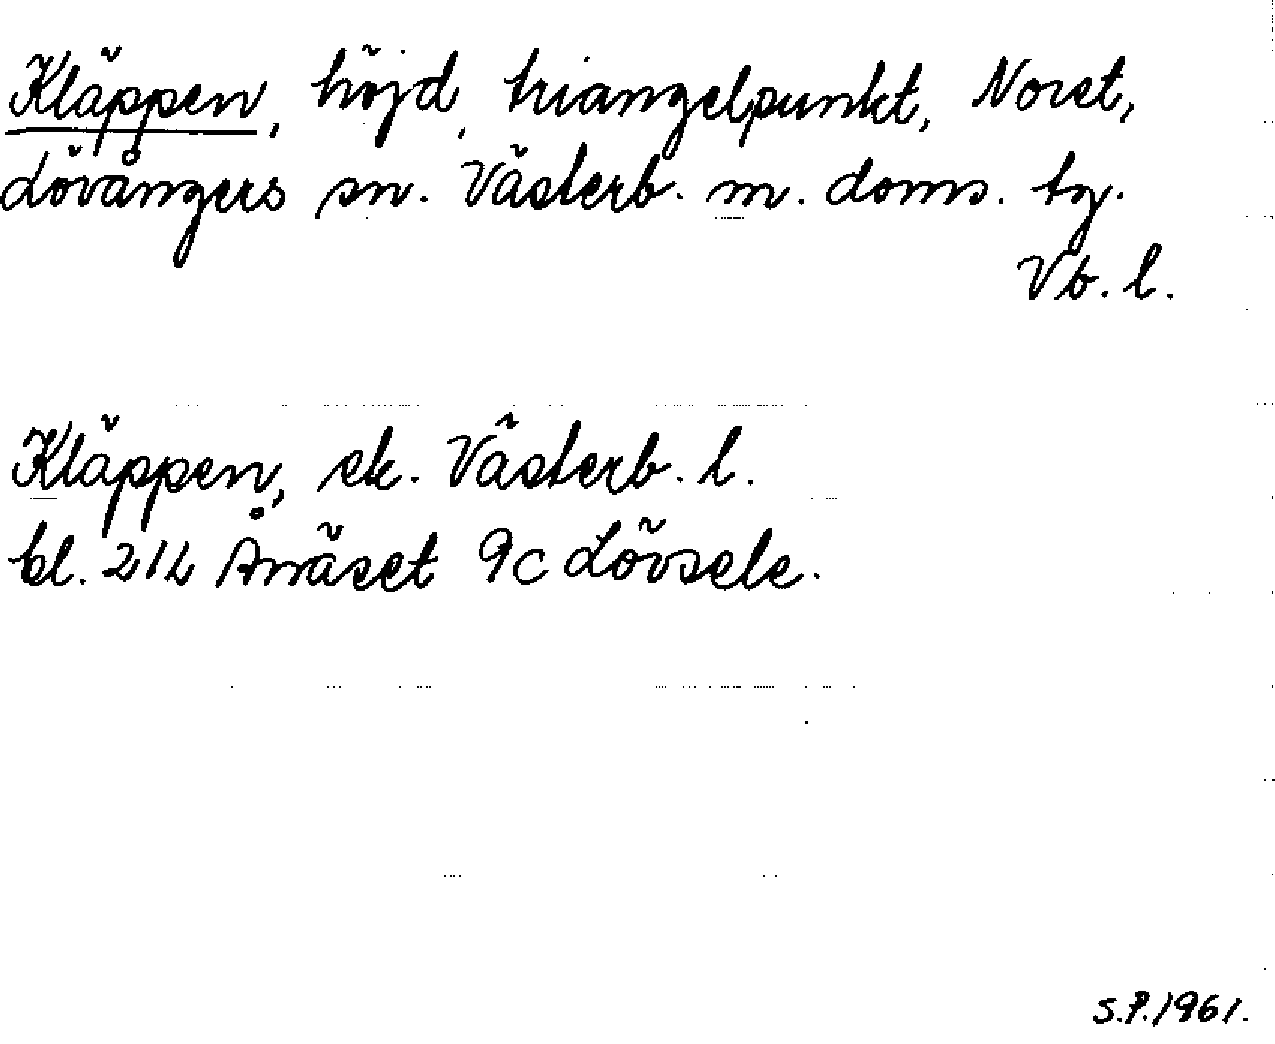 Kläppen, höjd, triangelpunkt, Noret,
Lövångers sn. Västerb. m. doms. tg.
Vb. l.
Kläppen, ek. Västerb. l.
bl. 21L Ånäset 9c Lövsele.
S.P. 1961.